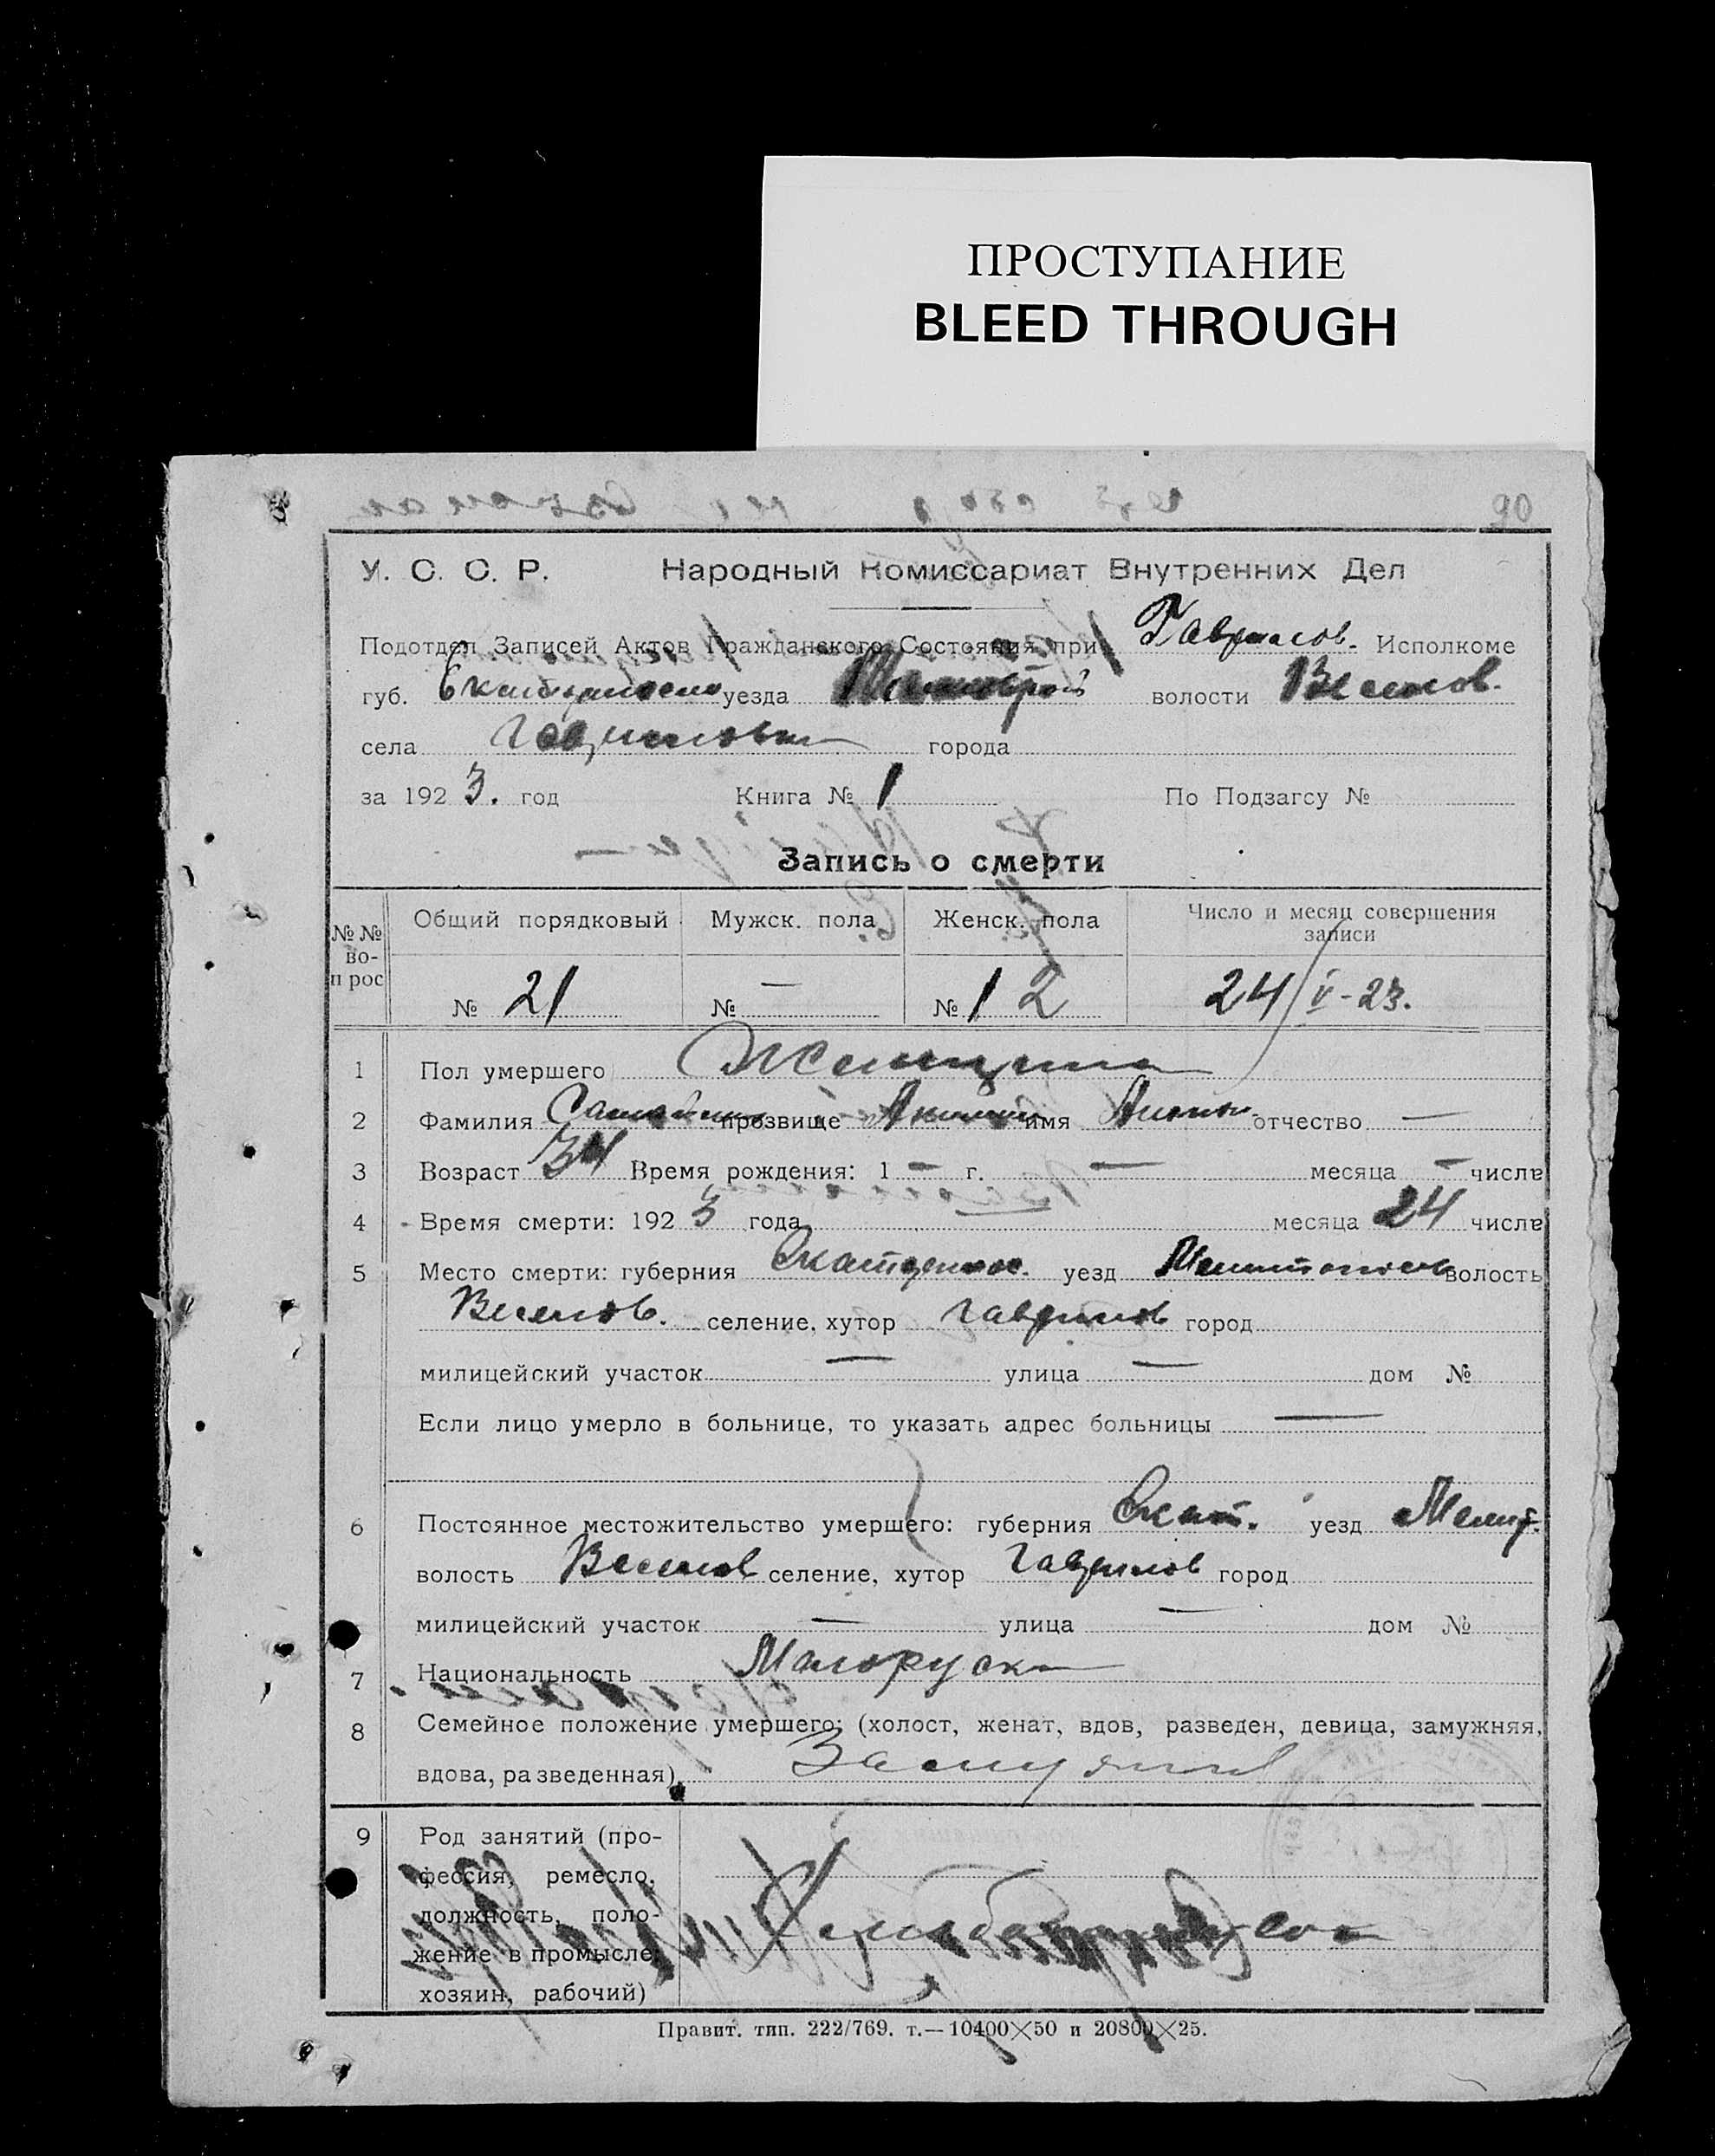 ПРОСТУПАНИЕ
BLEED THROUGH
90
У. С. С. Р. Народный Комиссариат Внутренних Дел
Подотдел Записей Актов Гражданского Состояния при Гаврилов. Исполкоме
губ. уезда волости Веселов.
села Гавриловки города
за 1923. год Книга № 1 По Подзагсу №
Запись о смерти
№ № во-п рос
Общий порядковый Мужск. пола Женск. пола Число и месяц совершения записи
№ 21 № — № 12 24/V-23.
1 Пол умершего Женщина
2 Фамилия прозвище имя отчество —
3 Возраст 34 Время рождения: 1 — г. — месяца — числа
4 Время смерти: 1923 года месяца 24 числа
5 Место смерти: губерния уезд волость
Веселов. селение, хутор Гаврилов город
милицейский участок — улица — дом №
Если лицо умерло в больнице, то указать адрес больницы —
6 Постоянное местожительство умершего: губерния Екат. уезд Мелит.
волость Веселов селение, хутор Гаврилов город
милицейский участок — улица — дом №
7 Национальность Малоруска
8 Семейное положение умершего: (холост, женат, вдов, разведен, девица, замужняя,
вдова, разведенная) Замужняя
9 Род занятий (про-
фессия, ремесло,
должность, поло-
жение в промысле,
хозяин, рабочий)
Правит. тип. 222/769. т.—10400×50 и 20800×25.